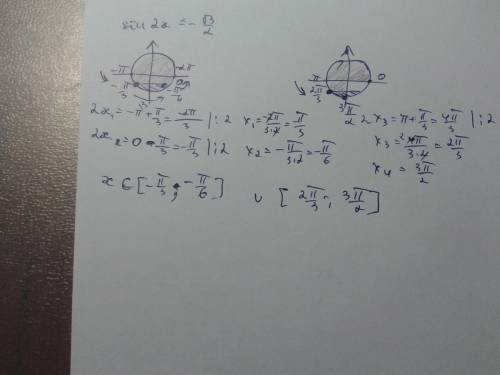 sin 2x = -√3/2
-π -2π 0
-π/3 -π/6
-π 0
2π/3
3π/2
2x₁ = -π + π/3 = -2π/3 |:2
x₁ = -2π/3·2 = -π/3
2x₂ = 0 - π/3 = -π/3 |:2
x₂ = -π/3·2 = -π/6
2x₃ = π + π/3 = 4π/3 |:2
x₃ = 4π/3·2 = 2π/3
x₄ = 3π/2
x ∈ [-π/3; -π/6] ∪ [2π/3; 3π/2]